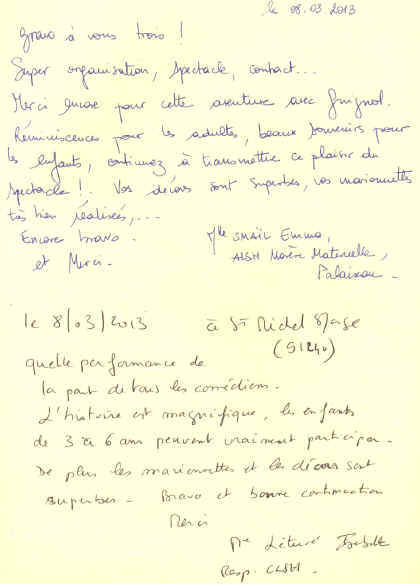 le 08.03 2013
Bravo à vous trois !
Super organisation, spectacle, contact...
Merci encore pour cette aventure avec Guignol.
Réminiscences pour les adultes, beaux souvenirs pour
les enfants, continuez à transmettre ce plaisir du
spectacle !. Vos décors sont superbes, vos marionnettes
très bien réalisées,...
Encore bravo.
et Merci.
Mlle SMAÏL Emma,
ALSH Maternelle,
Palaiseau.
le 8/03/2013 à St Michel S/Orge
(91240)
quelle performance de
la part de tous les comédiens.
L'histoire est magnifique, les enfants
de 3 à 6 ans peuvent vraiment participer.
De plus les marionnettes et les décors sont
superbes - Bravo et bonne continuation
Merci
Me Létuvé Isabelle
Resp. CLSH.